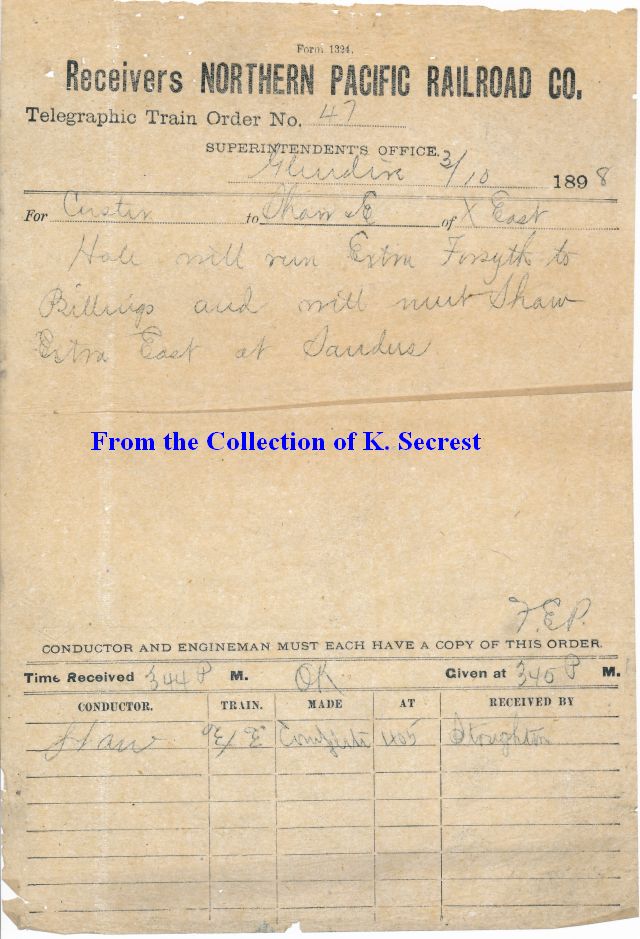 Form 1324.
Receivers NORTHERN PACIFIC RAILROAD CO.
Telegraphic Train Order No. 47
SUPERINTENDENT'S OFFICE.
Glendive 3/10 1898
For Custer to Shaw & E of X East
Hole will run Extra Forsyth to
Billings and will meet Shaw
Extra East at Sanders
From the Collection of K. Secrest
F.E.P.
CONDUCTOR AND ENGINEMAN MUST EACH HAVE A COPY OF THIS ORDER.
Time Received 344 P M. OK Given at 345 P M.
CONDUCTOR. TRAIN. MADE AT RECEIVED BY
Shaw Complete 405 Stoughton